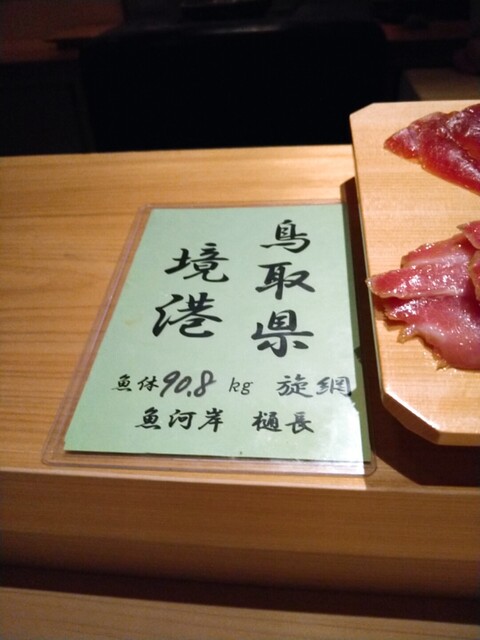 鳥取県
境港
魚体90.8kg 旋網
魚河岸 樋長